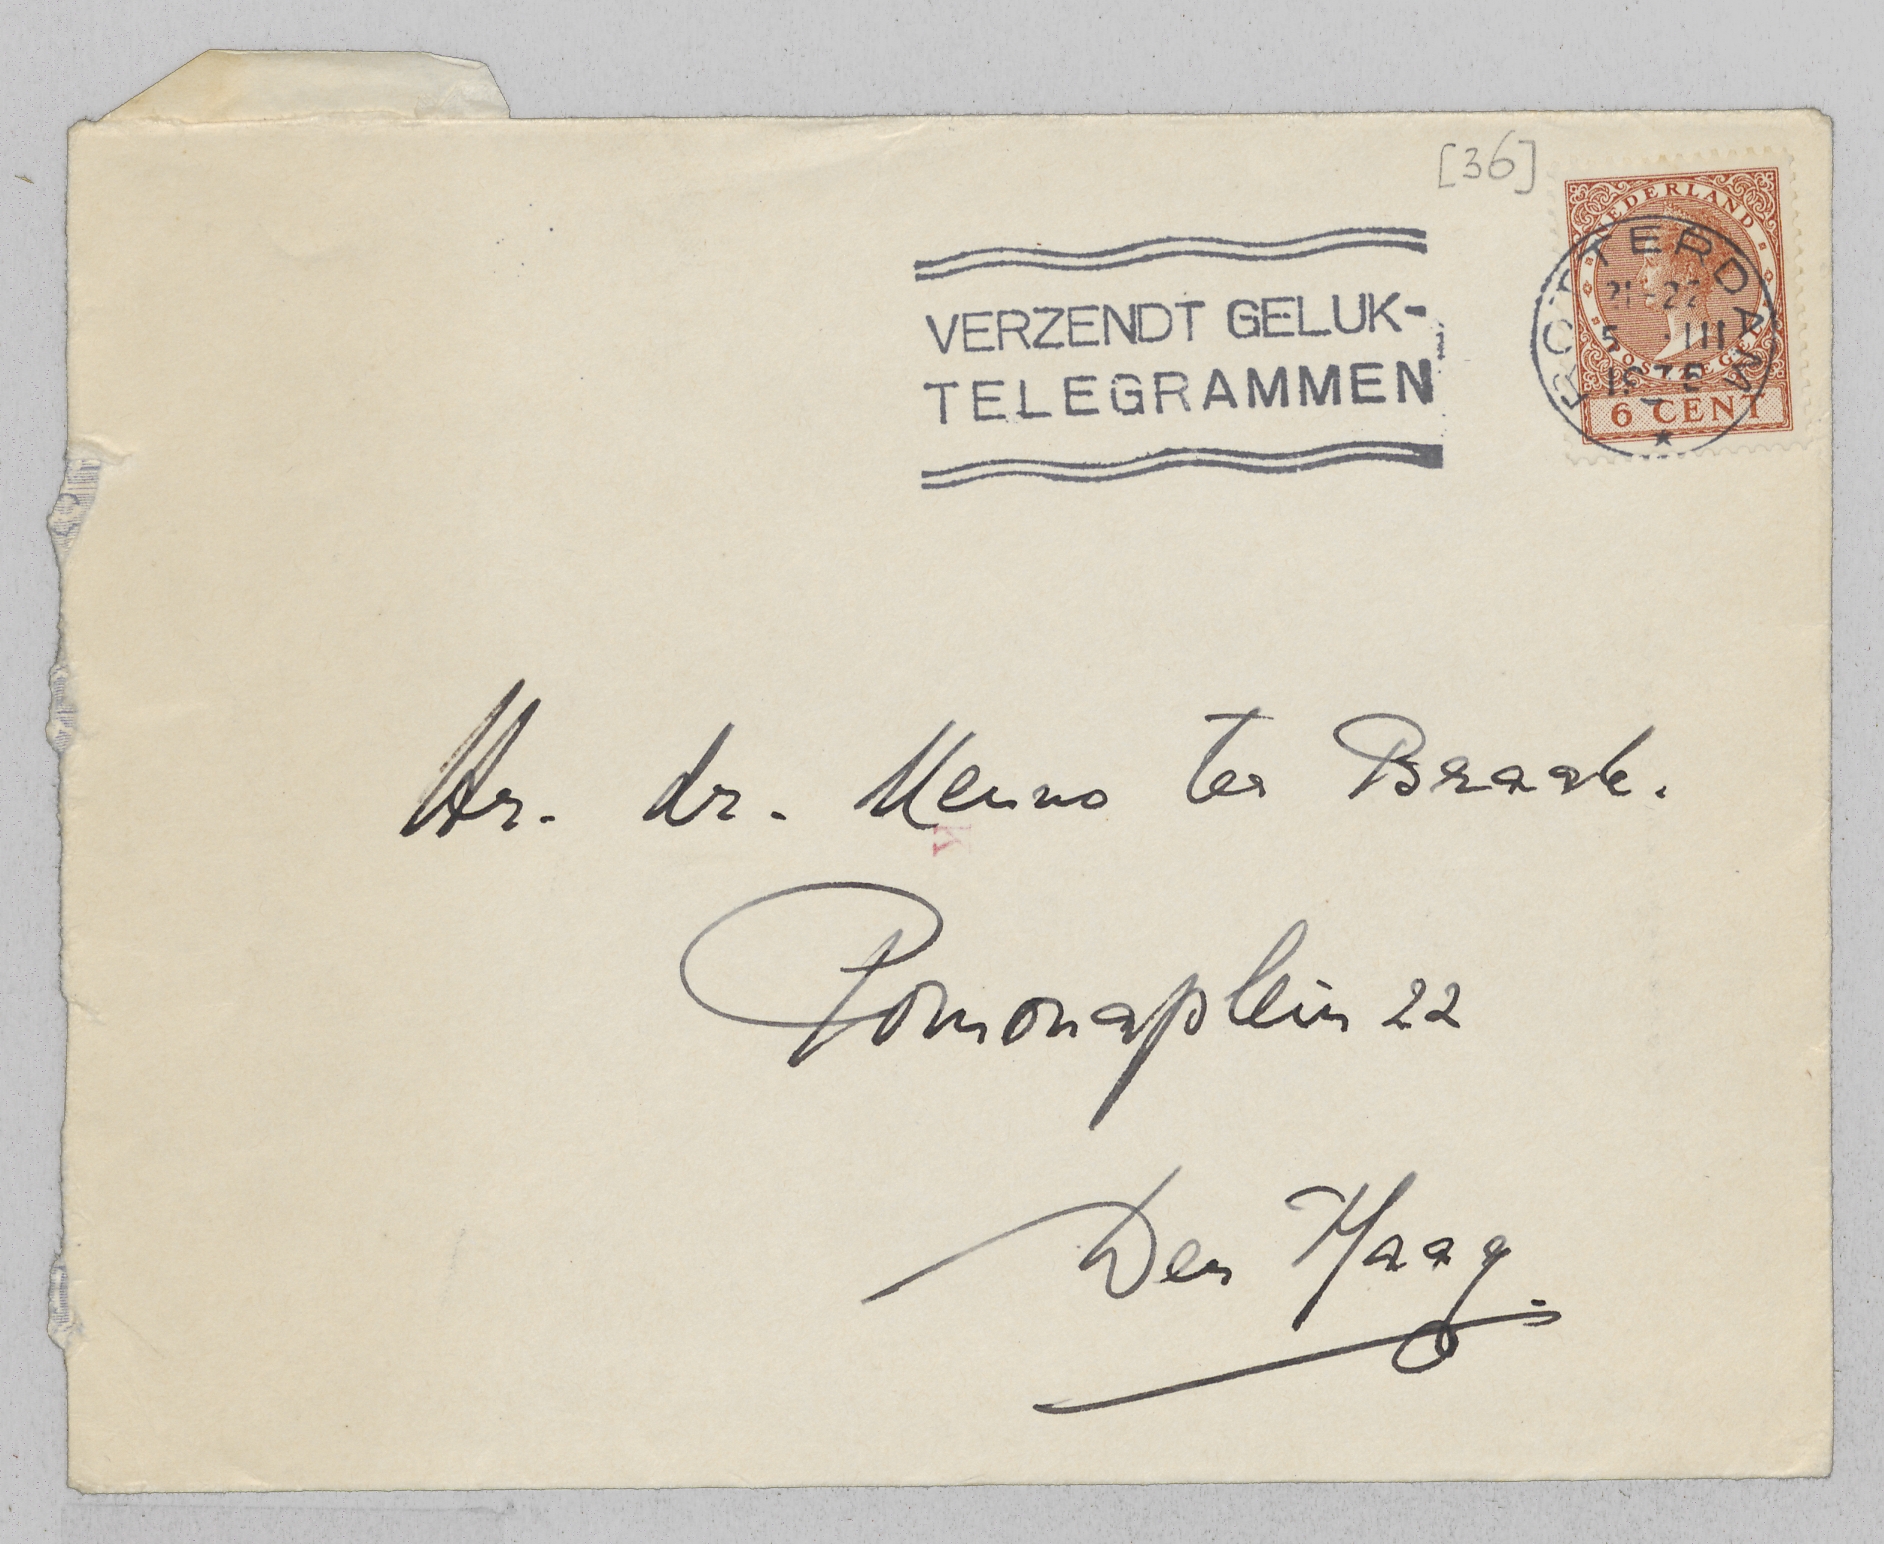 [36]
NEDERLAND
POSTZEGEL
6 CENT
ROTTERDAM
21-22
5 III
VERZENDT GELUK-
TELEGRAMMEN
Hr. dr. Menno ter Braak.
Pomonaplein 22
Den Haag.